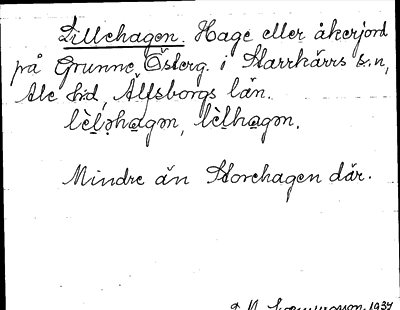 Lillehagen. Hage eller åkerjord
på Grunne Österg. i Starrkärrs s:n,
Ale hd, Älfsborgs län.
lèlǝhagǝn, lèlhagǝn.
Mindre än Storehagen där.
1937